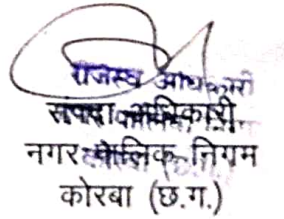 राजस्व अधिकारी
संपदा अधिकारी
नगर पालिक निगम
कोरबा (छ.ग.)